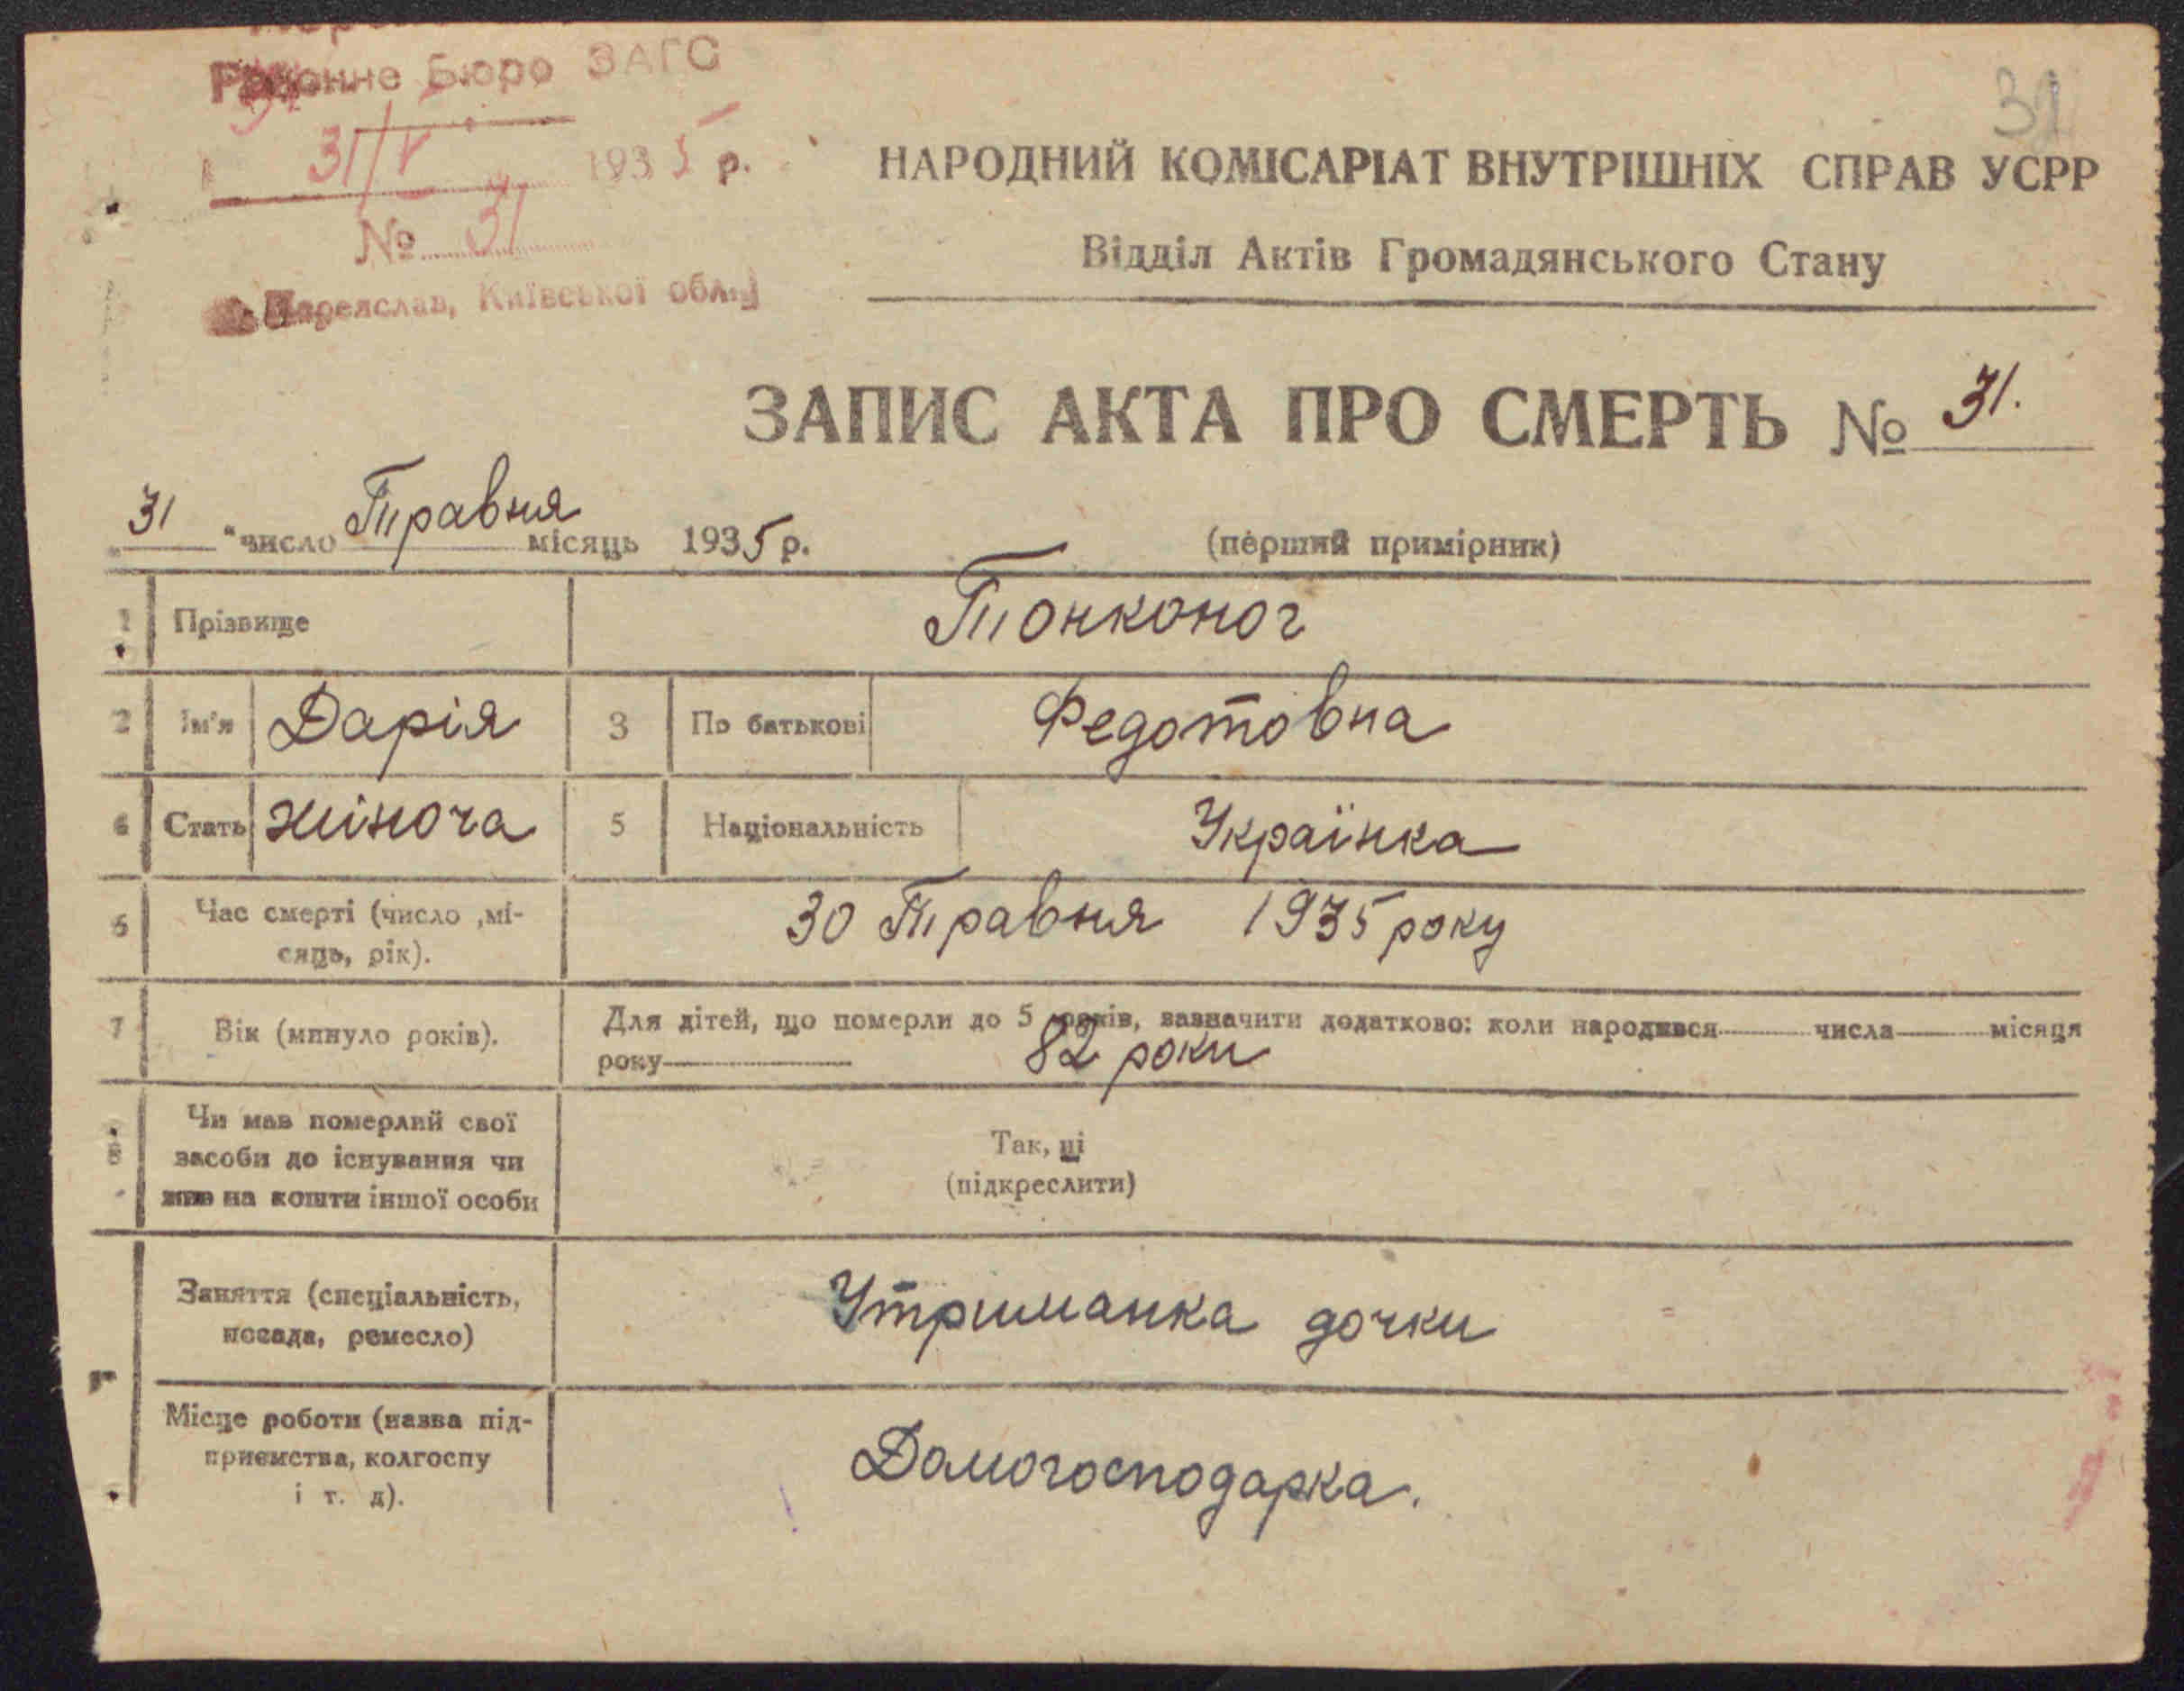 Районне Бюро ЗАГС
31/V 1935 р.
№ 31
Переяслав, Київської обл.
31
НАРОДНИЙ КОМІСАРІАТ ВНУТРІШНІХ СПРАВ УСРР
Відділ Актів Громадянського Стану
ЗАПИС АКТА ПРО СМЕРТЬ № 31.
31 " число Травня місяць 1935 р. (перший примірник)
1 Прізвище Тонконог
2 Ім'я Дарія 3 По батькові Федотовна
4 Стать жіноча 5 Національність Українка
6 Час смерті (число ,мі-
сяць, рік). 30 Травня 1935 року
7 Вік (минуло років). Для дітей, що померли до 5 років, зазначити додатково: коли народився числа місяця
року 82 роки
8 Чи мав померлий свої
засоби до існування чи
жив на кошти іншої особи
Так, ні
(підкреслити)
Заняття (спеціальність,
посада, ремесло) Утриманка дочки
Місце роботи (назва під-
приємства, колгоспу
і т. д). Домогосподарка.